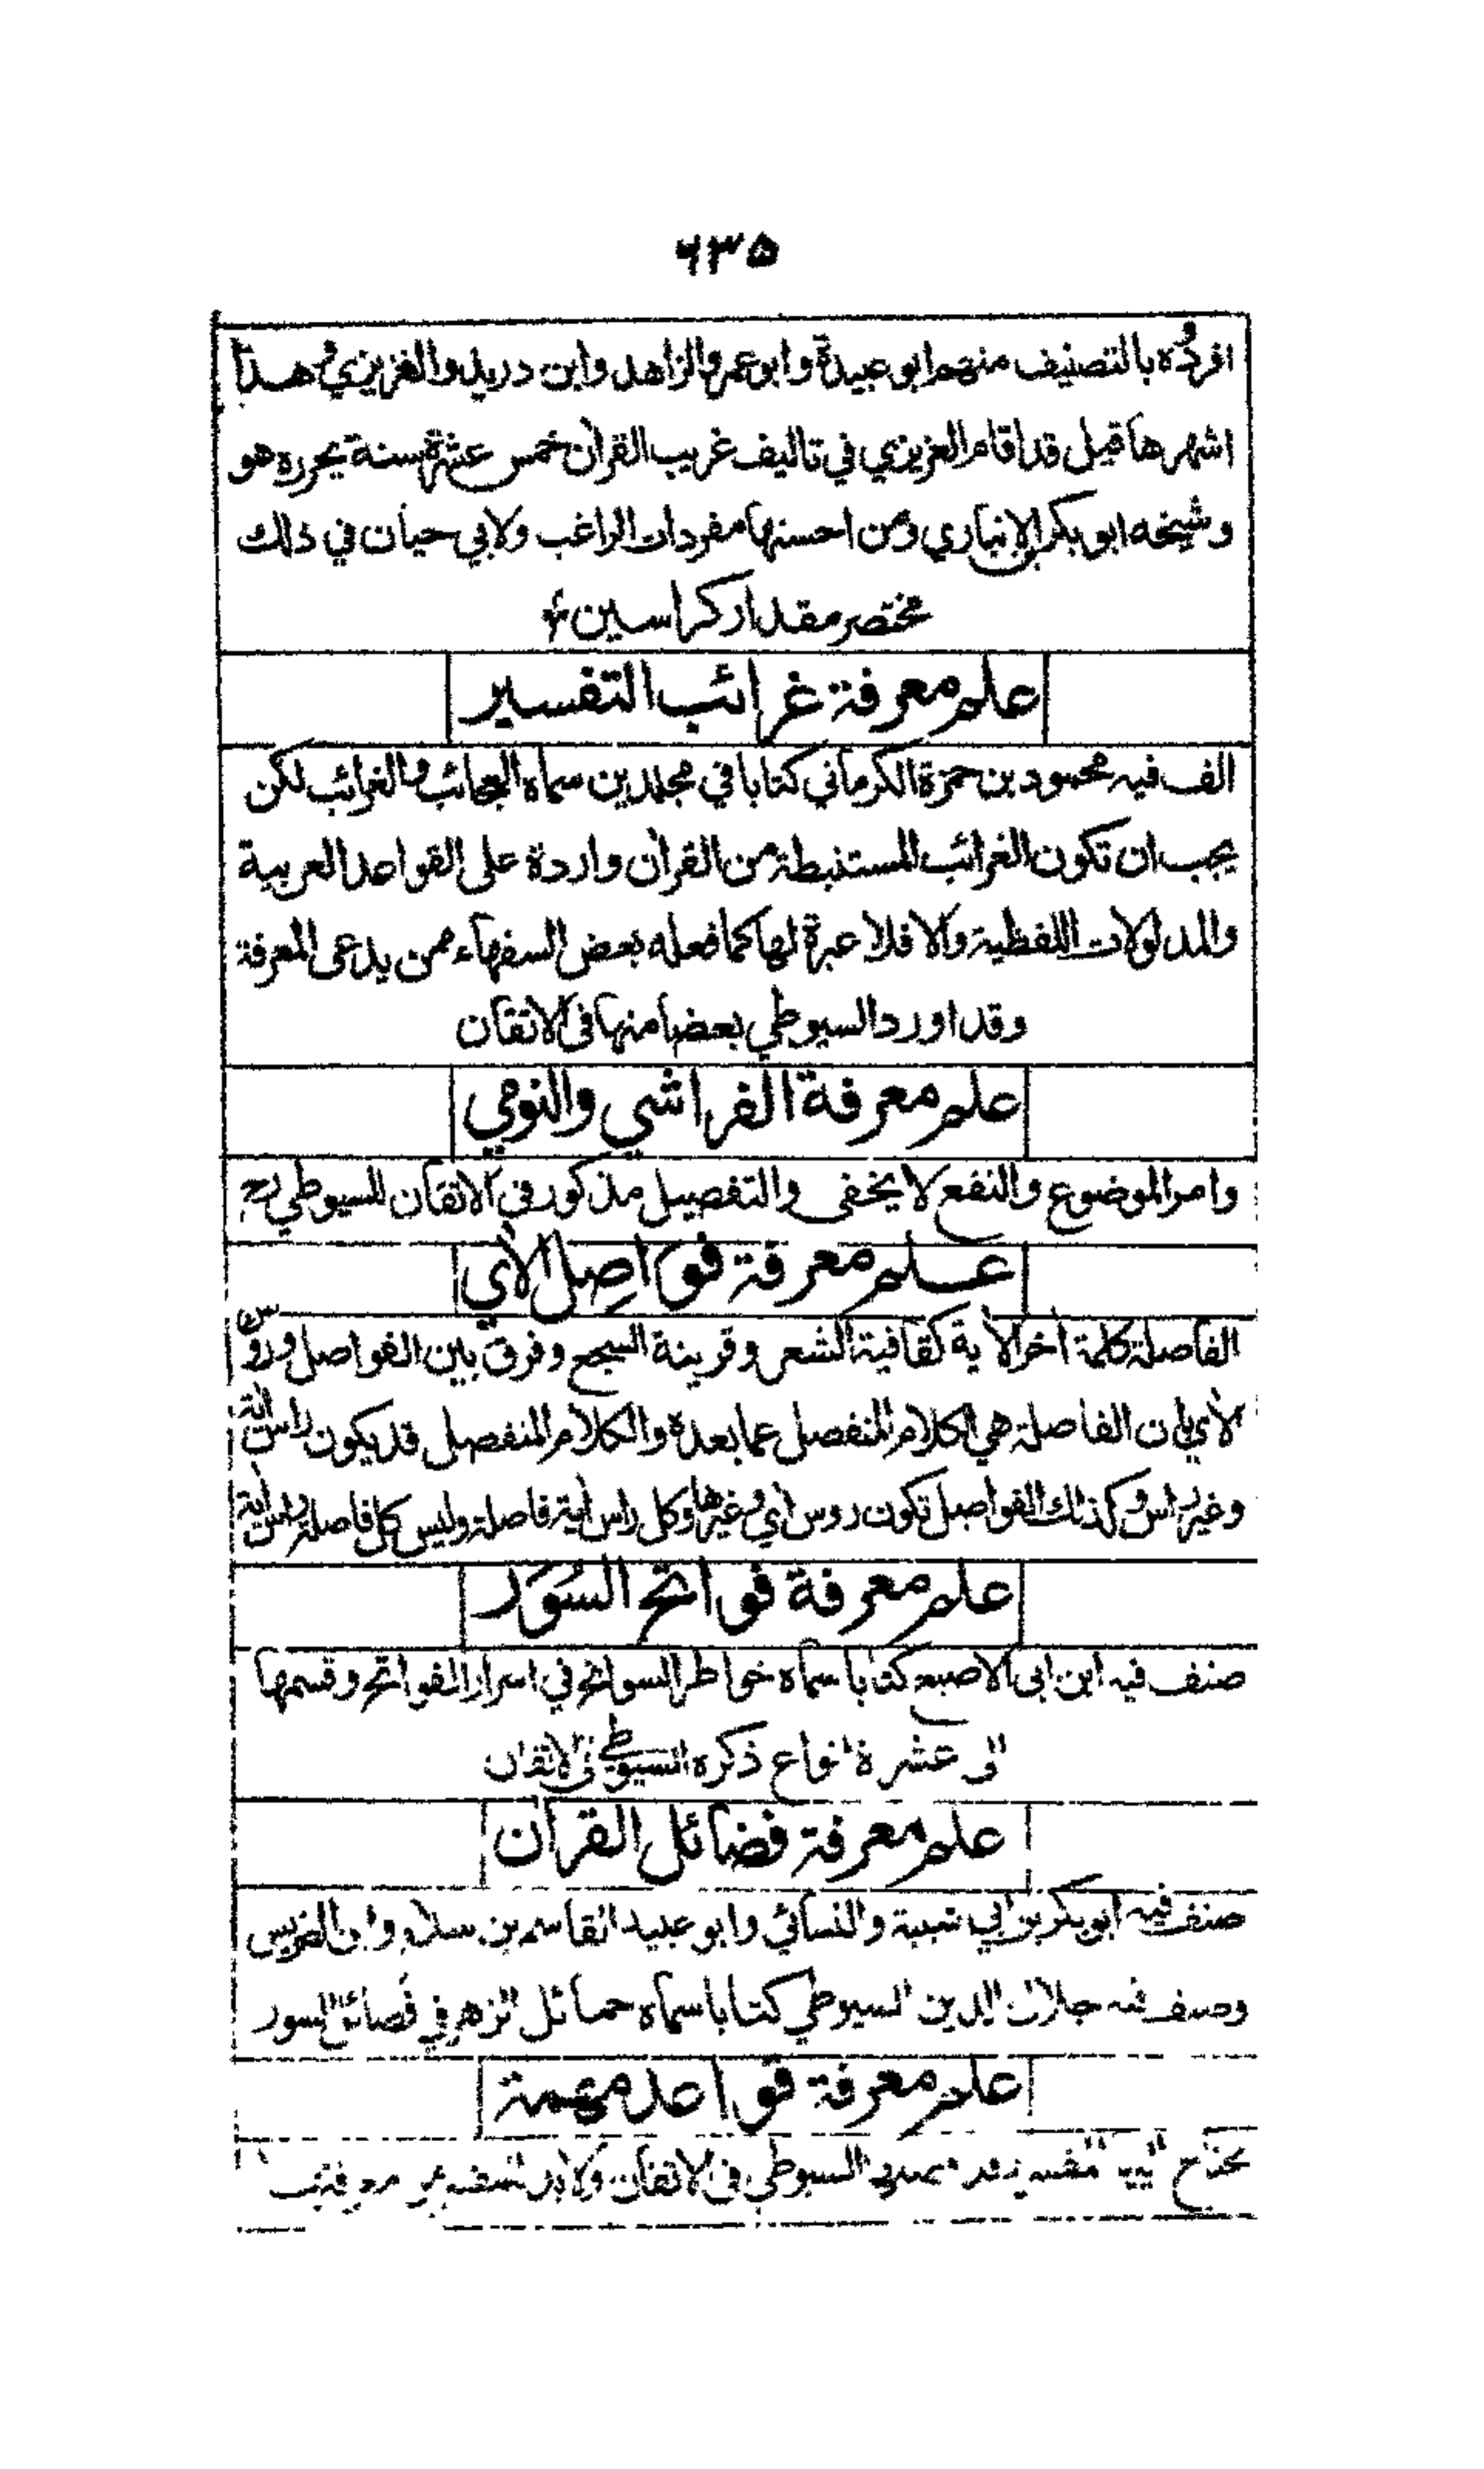 ۶۳۵
افرده بالتصنيف منهم ابو عبيدة وابو عمر والزاهد وابن دريد والغزيزي وهذا
اشهرها قيل قد اقام العزيزي في تاليف غريب القران خمس عشرة سنة يحرره هو
وشيخه ابو بكر الانباري ومن احسنها مفردات الراغب ولابي حيان في ذلك
مختصر مقدار كراسين
علم معرفة غرائب التفسير
الف فيه محمود بن حمزة الكرماني كتابا في مجلدين سماه العجائب والغرائب لكن
يجب ان تكون الغرائب المستنبطة من القران واردة على القواعد العربية
والمدلولات اللفظية والا فلا عبرة لها كما فعله بعض السفهاء ممن يدعى المعرفة
وقد اورد السيوطي بعضا منها في الاتقان
علم معرفة الفراشي والنومي
وامر الموضوع والنفع لا يخفى والتفصيل مذكور في الاتقان للسيوطي رح
علم معرفة فواصل الآي
الفاصلة كلمة آخر الآية كقافية الشعر وقرينة السجع وفرق بين الفواصل وروس
الآي بان الفاصلة هي الكلام المنفصل عما بعده والكلام المنفصل قد يكون راس اية
وغير راس وكذلك الفواصل تكون روس آي وغيرها وكل راس اية فاصلة وليس كل فاصلة راس اية
علم معرفة فواتح السُوَر
صنف فيه ابن ابي الاصبع كتابا سماه خواطر السوانح في اسرار الفواتح وقسمها
الى عشرة انواع ذكره السيوطي في الاتقان
علم معرفة فضائل القرآن
صنف فيه ابو بكر بن ابي شيبة والنسائي وابو عبيد القاسم بن سلام وابن الضريس
وصنف فيه جلال الدين السيوطي كتابا سماه حمائل الزهر في فضائل السور
علم معرفة قواعد مهمة
يحتاج اليها المفسر السيوطي في الاتقان ولا بد للمفسر معرفتها